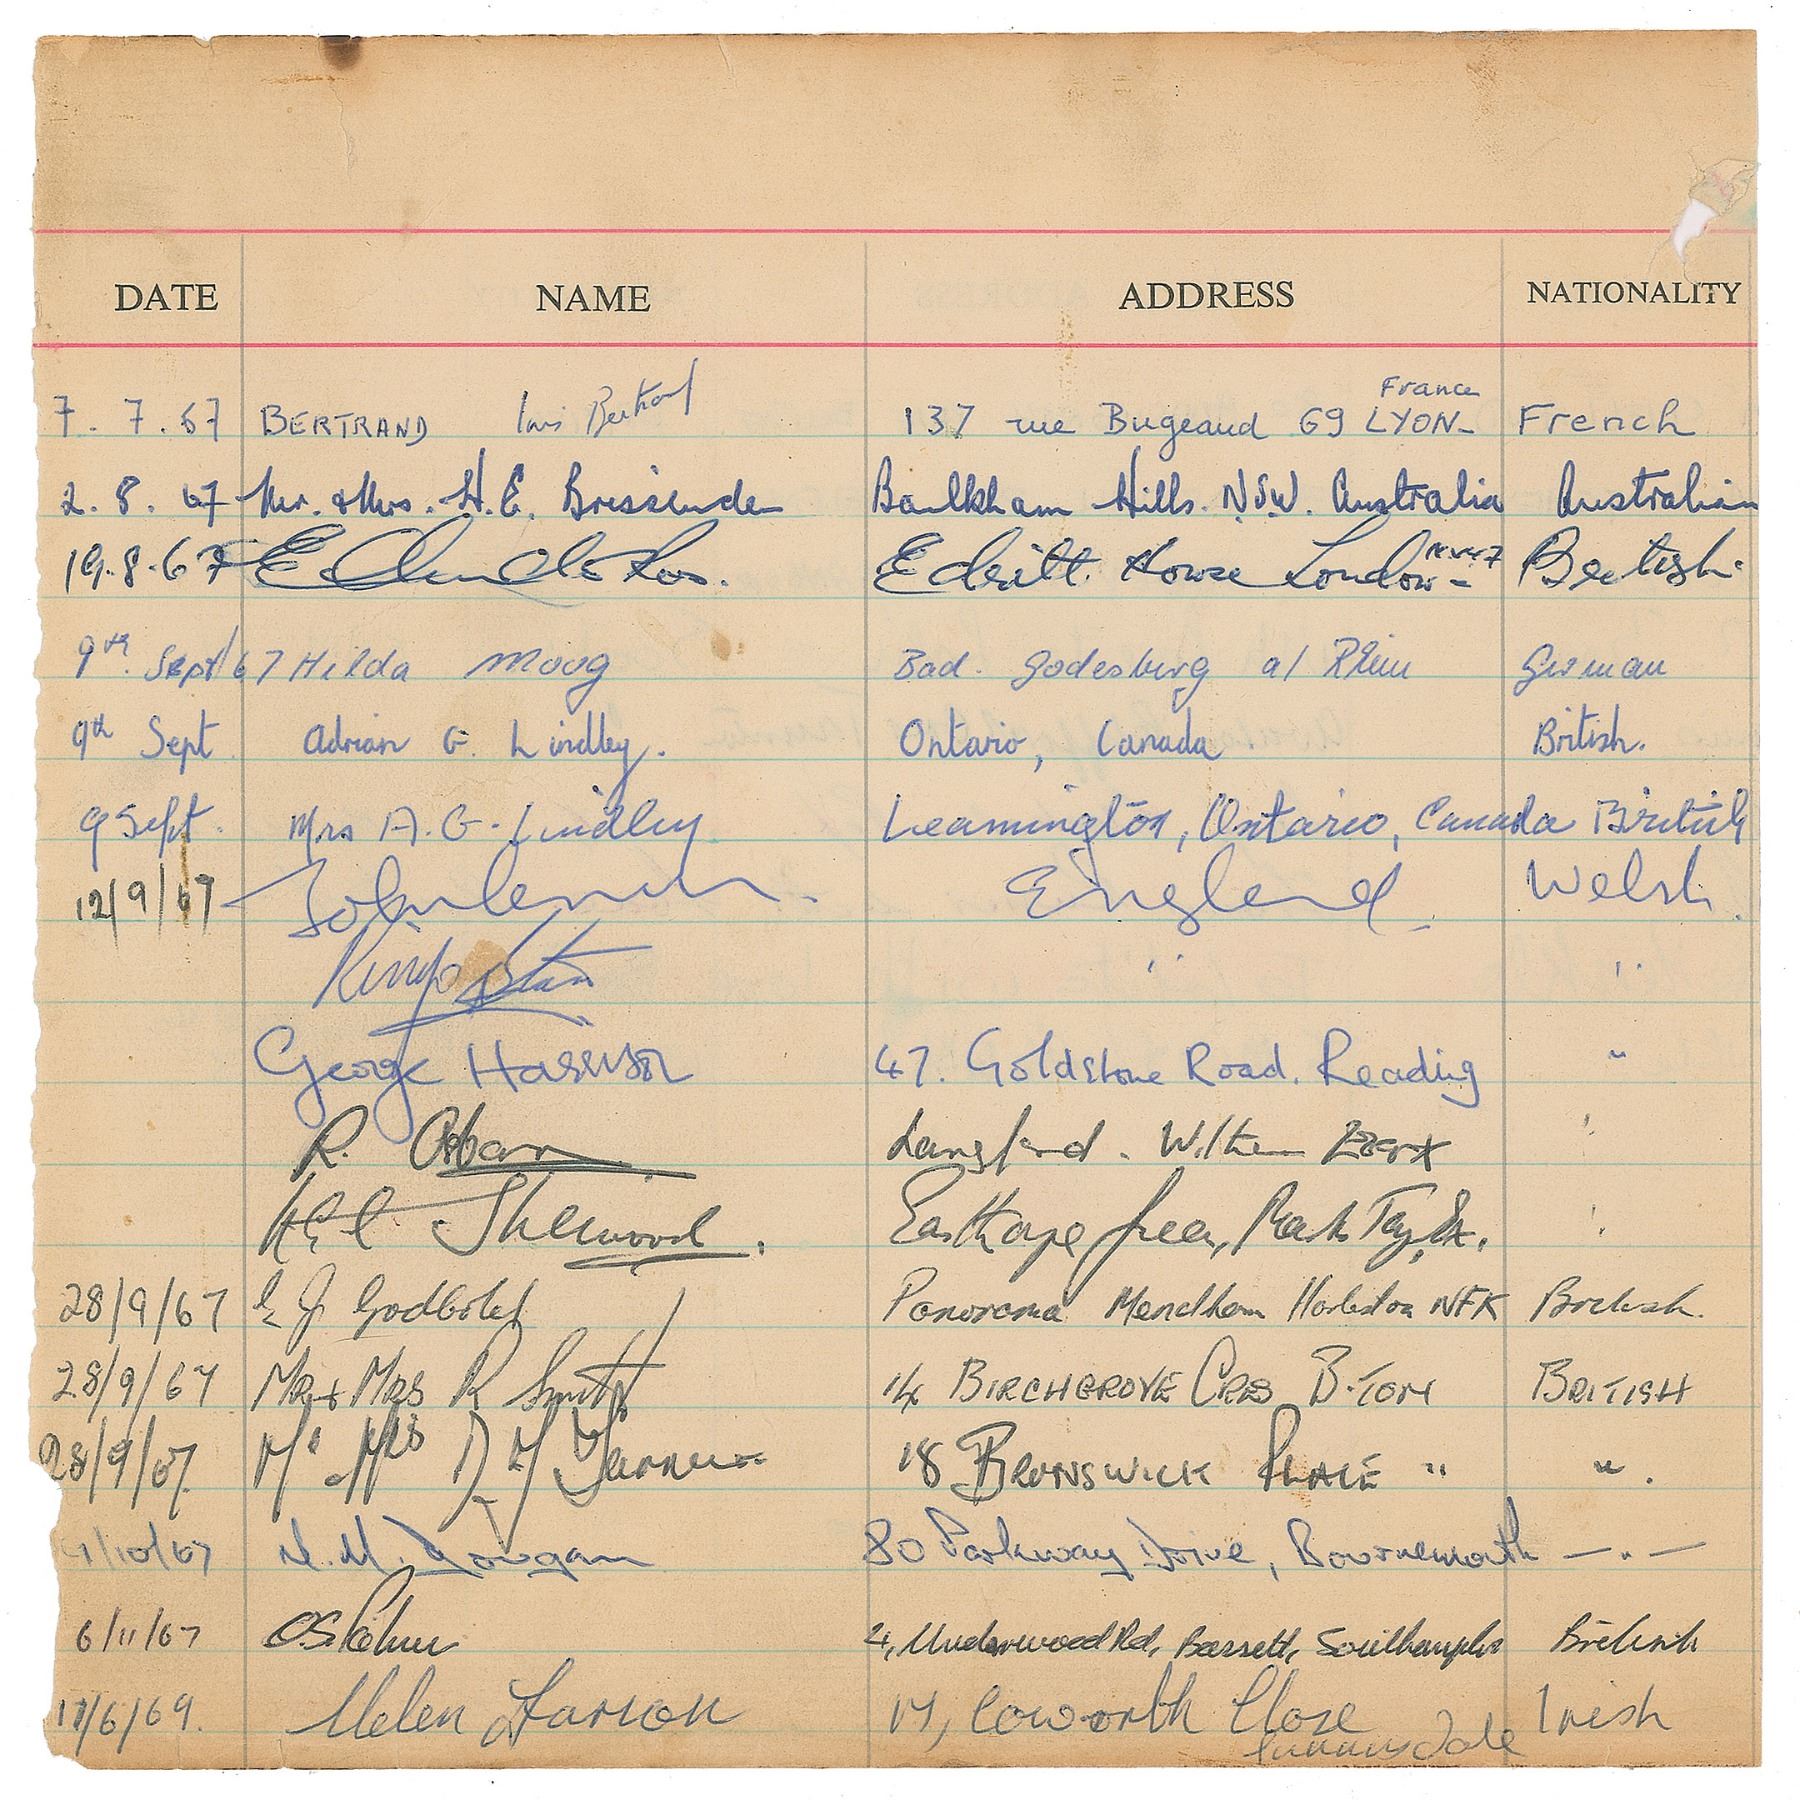 DATE NAME ADDRESS NATIONALITY
France
7. 7. 67 BERTRAND Bertrand 137 rue Bugeaud 69 LYON- French
2. 8. 67 Mr. & Mrs. H. E. Baulkham Hills. N.S.W. Australia Australian
19.8.67 House London British
9th Sept/67 Hilda Moog Bad. Godesberg a/ Rhein German
9th Sept Adrian G. Lindley. Ontario, Canada British.
9 Sept. Mrs A. G. Lindley. Leamington, Ontario, Canada British
12/9/67 John Lennon. England. Welsh.
Ringo Starr " "
George Harrison 47. Goldstone Road. Reading "
R. Langford. "
Sherwood. Green, "
28/9/67 J Godbold Panorama Mendham Harleston NFK British.
28/9/67 MR + MRS R Smith 14 BIRCHGROVE CRES B-TON BRITISH
28/9/67. Mr & Mrs 18 BRUNSWICK PLACE " ".
/10/67 M. 80 Parkway Drive, Bournemouth — " —
6/11/67 Underwood Rd, Bassett, Southampton British
17/6/69. Helen Coworth Close Irish
Sunningdale